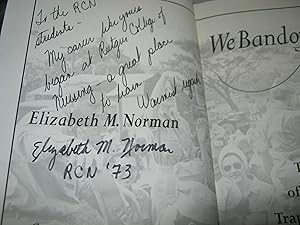 To the RCN
students -
My career like yours
began at Rutgers College of
Nursing - a great place
to learn
Warmest regards
Elizabeth M. Norman
Elizabeth M. Norman
RCN '73
We Bando
T
of
Tra